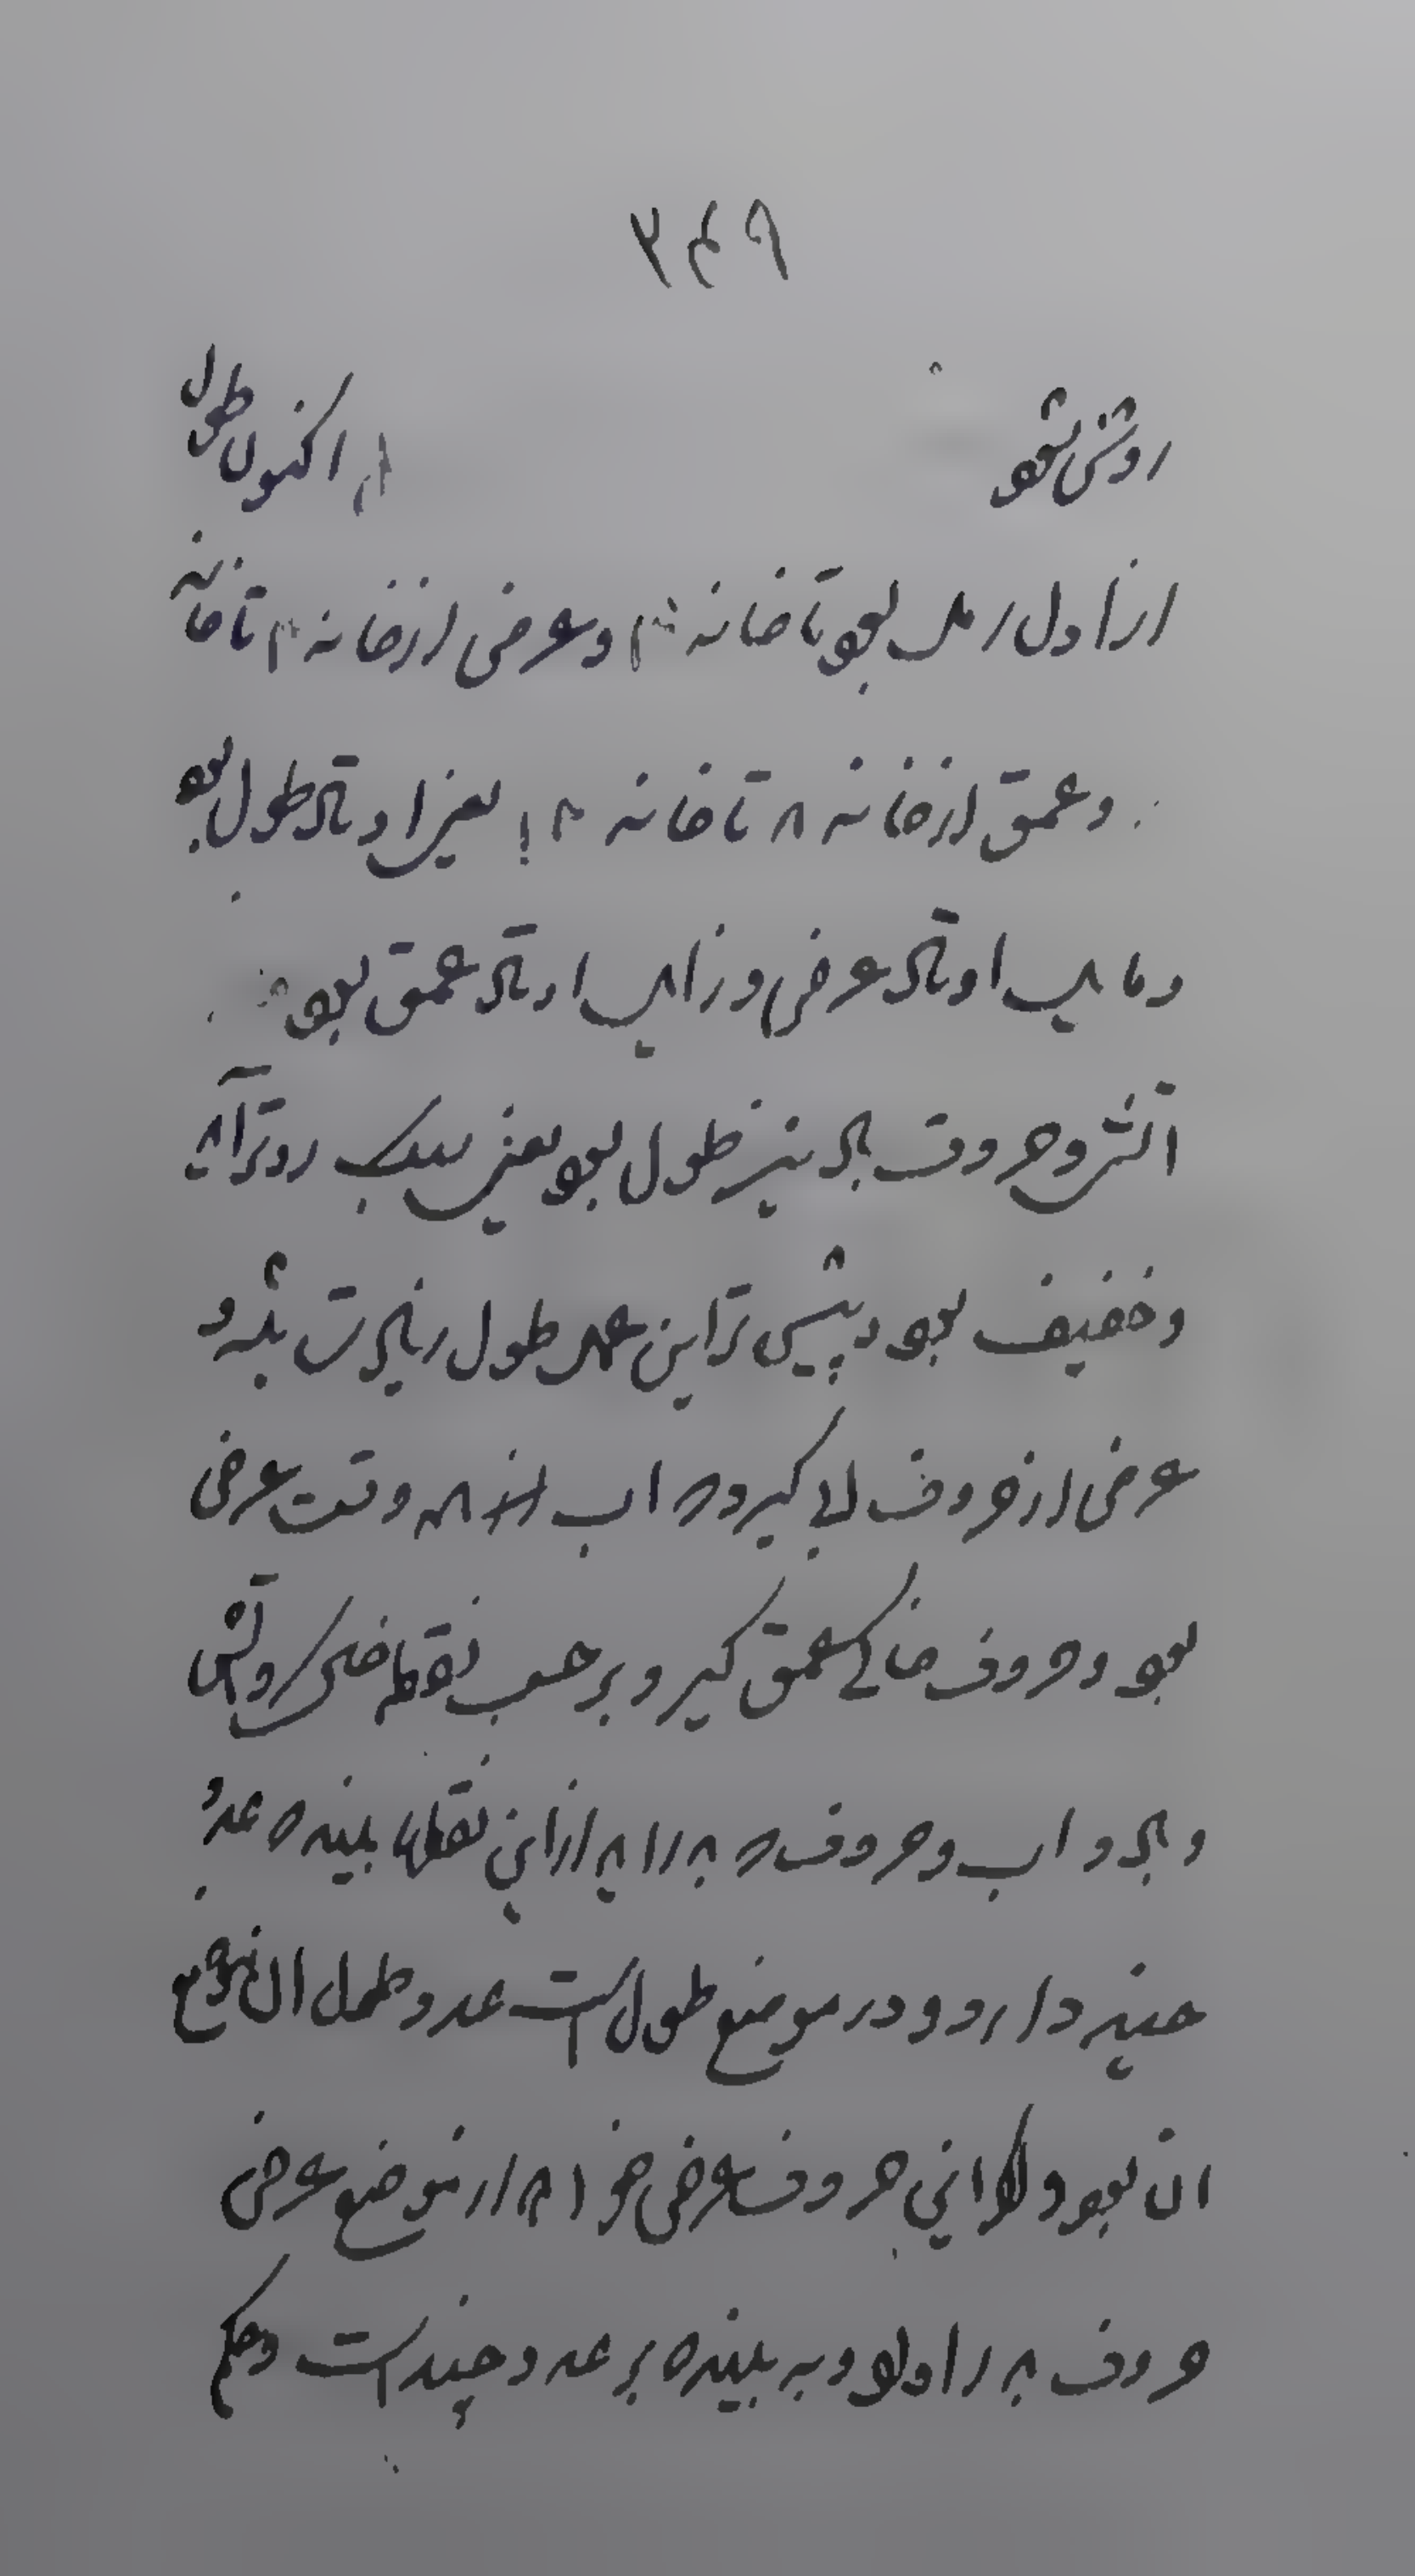 ۳۴۹
روشن شود اکنون طول
از اول رمل بود تا خانه ۴ و عرض از خانه ۴ تا خانه
و عمق از خانه ۸ تا خانه ۱۲ یعنی اوتاد طول بود
و مایل اوتاد عرض و زایل اوتاد عمق بود
آتش و حروف باد نیز طول بود یعنی سبک روتر آید
و خفیف بود و پیش تر این همه طول زیادت باشد و
عرض از حروف آبی گیرد اب وقت عرض
بود و حروف خاکی عمق گیرد بر حسب نقطه خاک و آتش
و باد و اب و حروف را از این نقطها ببیند که عدد
چند دارد و در موضع طول است عدد طول ان موضع
ان بود و اگر این حروف عرض خواهد از موضع عرض
حروف را اول دو به بیند که بر عدد چند است و حکم